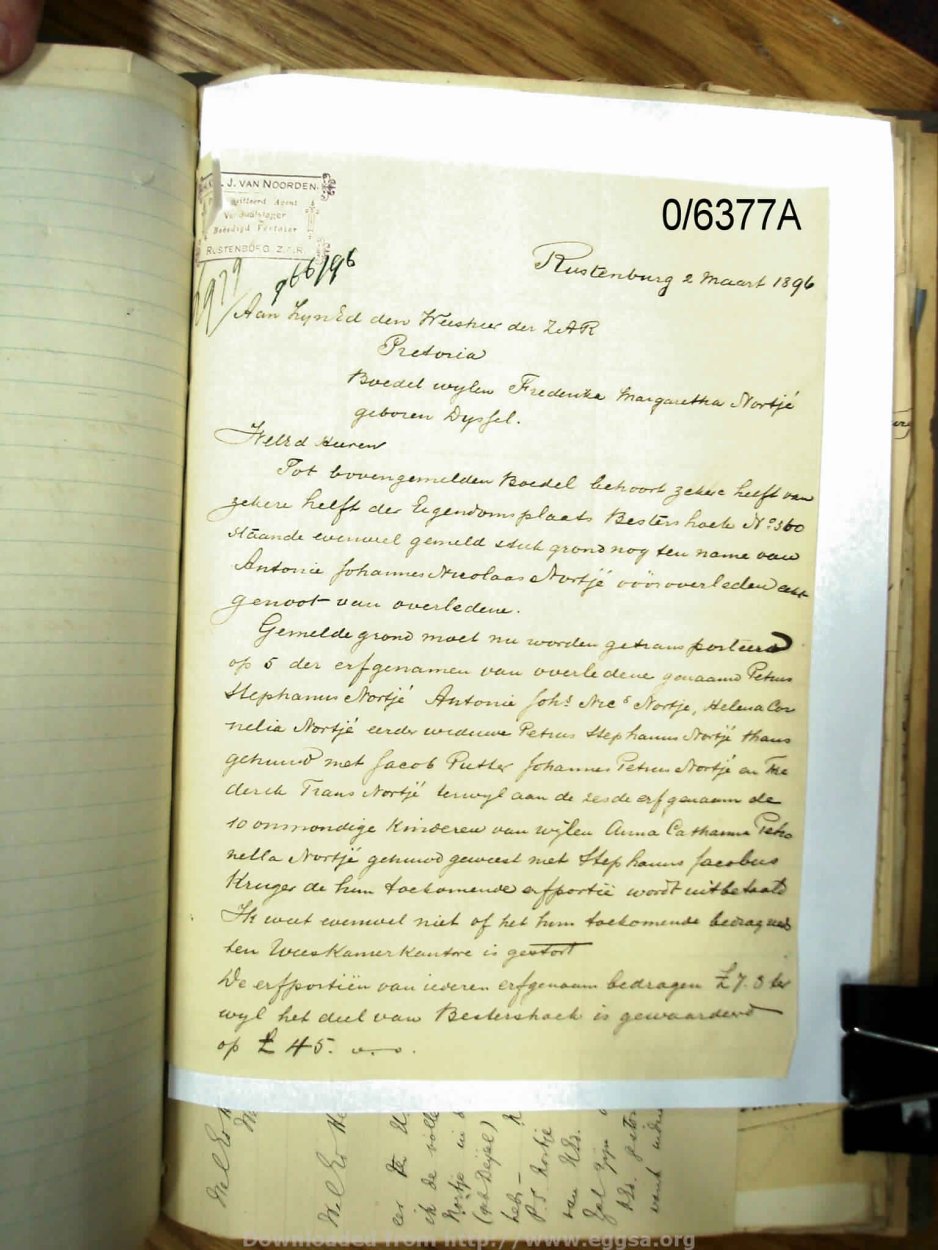 J. VAN NOORDEN.
Agent
Beëedigd Vertaler
RUSTENBURG, Z.A.R.
0/6377A
966/96
Rustenburg 2 Maart 1896
Aan ZynEd den Weesheer der ZAR
Pretoria
Boedel wylen Frederika Margaretha Nortjé
geboren Dyssel.
WelEd Heeren
Tot bovengemelden Boedel behoort zekere helft van
zekere helft der Eigendomsplaats Besters hoek No 360
staande evenwel gemeld stuk grond nog ten name van
Antonie Johannes Nicolaas Nortjé vooroverleden echt
genoot van overledene.
Gemelde grond moet nu worden getransporteerd
op 5 der erfgenamen van overledene genaamd Petrus
Stephanus Nortjé Antonie Johs Nics Nortje, Helena Cor
nelia Nortjé eerder weduwe Petrus Stephanus Nortjé thans
gehuwd met Jacob Putter Johannes Petrus Nortjé en Fre
derik Frans Nortjé terwyl aan de zesde erfgenaam de
10 onmondige Kinderen van wylen Anna Catharina Petro
nella Nortjé gehuwd geweest met Stephanus Jacobus
Kruger de hun toekomende erfportie wordt uitbetaald
Ik weet evenwel niet of het hun toekomende bedrag reeds
ten Weeskamer Kantore is gestort
De erfportiën van iederen erfgenaam bedragen £7.3 ter
wyl het deel van Bestershoek is gewaardeerd
op £ 45.
WelEd
WelEd
ik de
Nortje
(geb Dyssel)
hebr
P.S. Nortje
van
Downloaded from http://www.eggsa.org